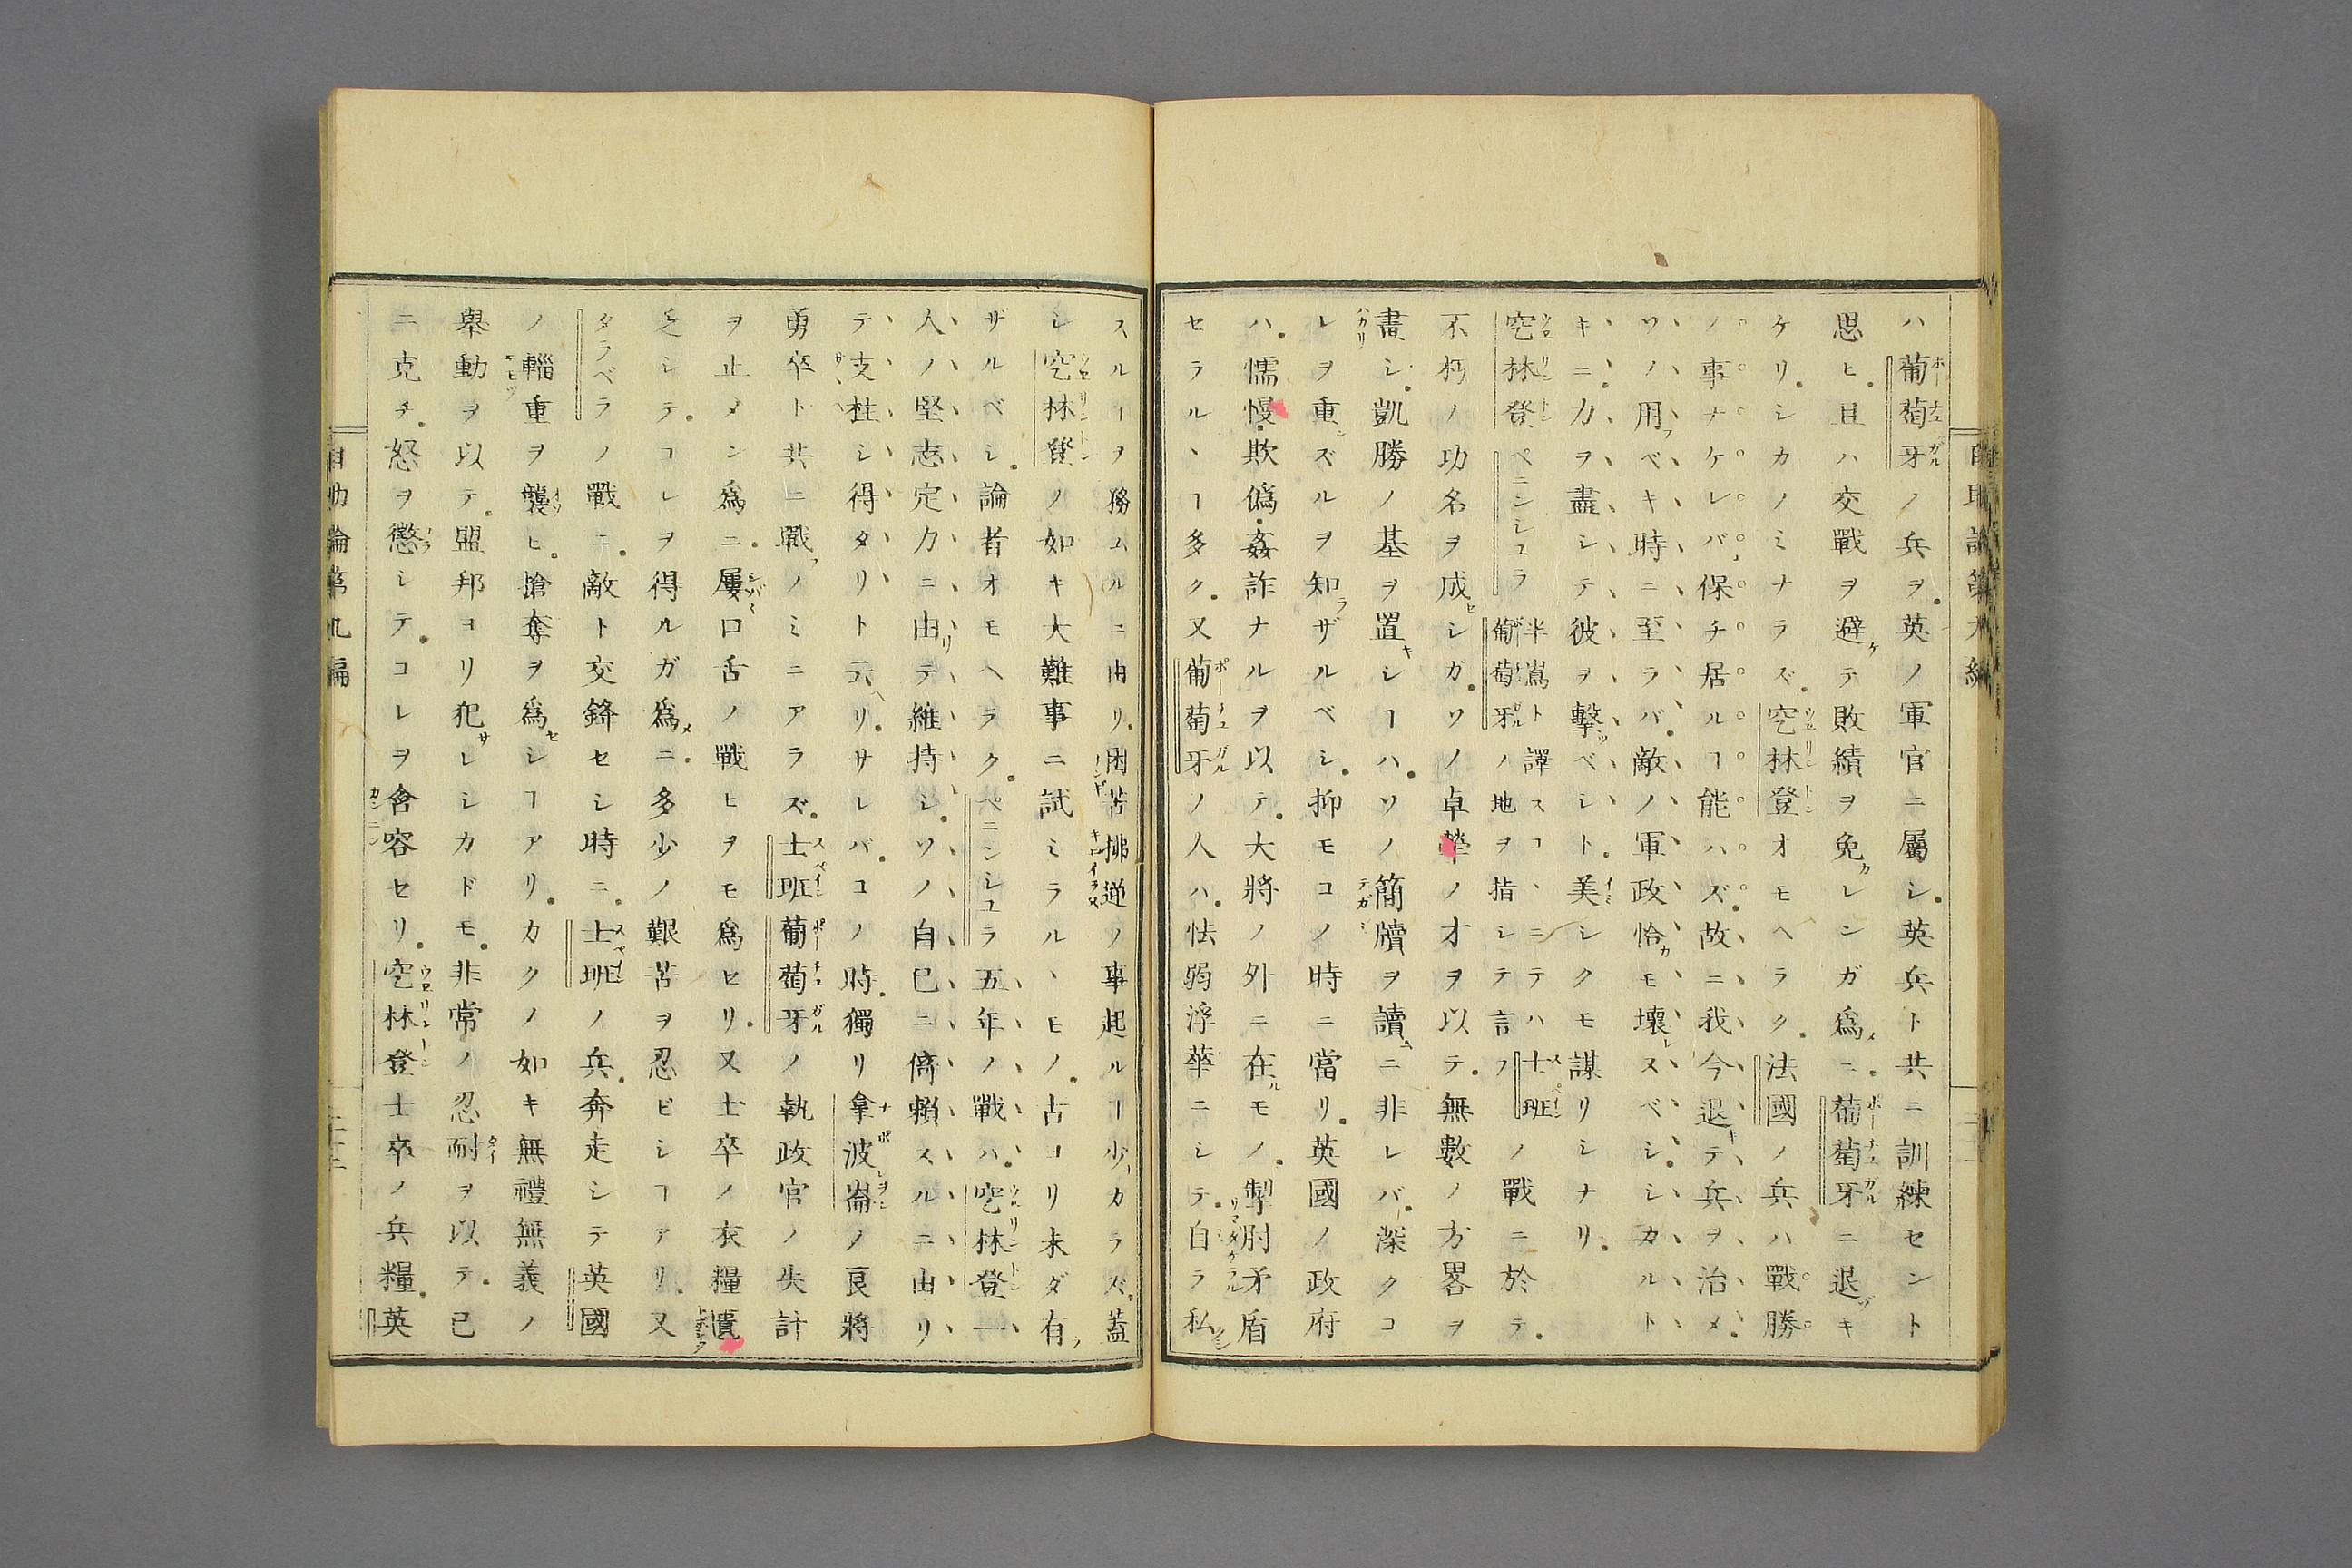 ハ葡萄牙ノ兵ヲ英ノ軍官ニ屬シ英兵ト共ニ訓練セント
思ヒ且ハ交戰ヲ避ケテ敗績ヲ免カレンガ爲メニ葡萄牙ニ退ゾキ
ケリシカノミナラズ空林登オモヘラク法國ノ兵ハ戰勝
ノ事ナケレバ保チ居ルヿ能ハズ故ニ我今退キテ兵ヲ治メ
ソノ用フベキ時ニ至ラバ敵ノ軍政恰カモ壞レヌベシシカルト
キニ力ヲ盡シテ彼ヲ擊ツベシト美シクモ謀リシナリ
空林登ペニンシュラ半嶌ト譯スコヽニテハ士班葡萄牙ノ地ヲ指シテ言フノ戰ニ於テ
不朽ノ功名ヲ成セシガソノ卓犖ノ才ヲ以テ無數ノ方畧ヲ
畫シ凱勝ノ基ヲ置キシヿハソノ簡牘ヲ讀ムニ非レバ深クコ
レヲ重ンズルヲ知ラザルベシ抑モコノ時ニ當リ英國ノ政府
ハ懦慢欺僞姦詐ナルヲ以テ大將ノ外ニ在ルモノ掣肘矛盾
セラルヽヿ多ク又葡萄牙ノ人ハ怯弱浮華ニシテ自ラ私
スルヿヲ務ムルニ由リ困苦拂逆ノ事起ルヿ少カラズ蓋
シ空林登ノ如キ大難事ニ試ミラルヽヒノ古ヨリ未ダ有ラ
ザルベシ論者オモヘラクペニンシュラ五年ノ戰ハ空林登一
人ノ堅志定力ニ由リテ維持シソノ自己ニ倚賴スルニ由リ
テ支柱シ得タリト云ヘリサレバコノ時獨リ拿波崙ノ良將
勇卒ト共ニ戰フノミニアラズ士班葡萄牙ノ執政官ノ失計
ヲ止メン爲ニ屢口舌ノ戰ヒヲモ爲ヒリ又士卒ノ衣糧匱
乏シテコレヲ得ルガ爲メニ多少ノ艱苦ヲ忍ビシヿアリ又
タラベラノ戰ニ敵ト交鋒セシ時ニ士班ノ兵奔走シテ英國
ノ輜重ヲ襲ヒ搶奪ヲ爲セシヿアリカクノ如キ無禮無義ノ
舉動ヲ以テ盟邦ヨリ犯サレシカドモ非常ノ忍耐ヲ以テ已
ニ克チ怒ヲ懲シテコレヲ含容セリ空林登士卒ノ兵糧英
自助論第九編